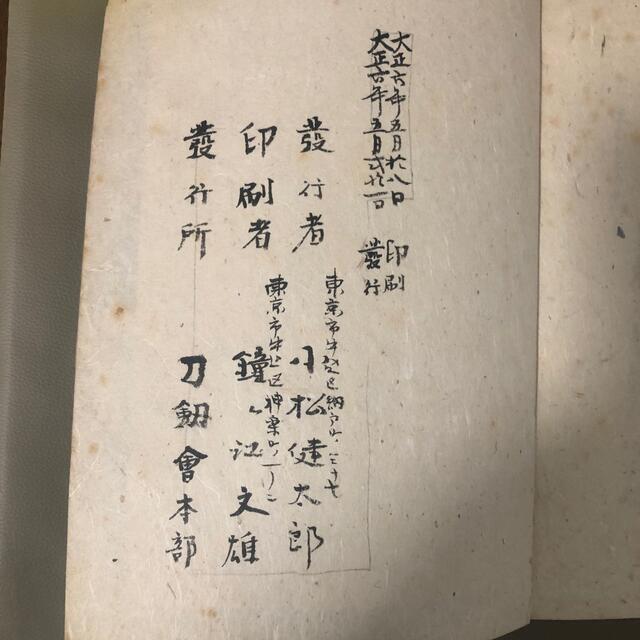 大正六年五月拾八日 印刷
大正六年五月弐拾一日 發行
東京市牛込区納戸町三十七
發行者 小松健太郎
東京市牛込区神楽町一ノ二
印刷者 鐘ヶ江文雄
發行所 刀劔會本部